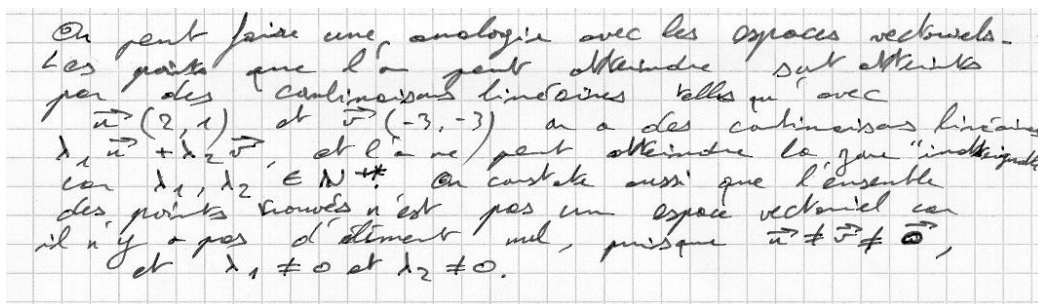 On peut faire une analogie avec les espaces vectoriels.
Les points que l'on peut atteindre sont atteints
par des combinaisons linéaires telles qu'avec
$\vec{u}$ (2, 1) et $\vec{v}$ (-3, -3) on a des combinaisons linéaires
$\lambda_1 \vec{u} + \lambda_2 \vec{v}$, et l'on ne peut atteindre la zone "inatteignable"
car $\lambda_1, \lambda_2 \in \mathbb{N}^{+*}$. On constate aussi que l'ensemble
des points trouvés n'est pas un espace vectoriel car
il n'y a pas d'élément nul, puisque $\vec{u} \neq \vec{v} \neq \vec{0}$,
et $\lambda_1 \neq 0$ et $\lambda_2 \neq 0$.